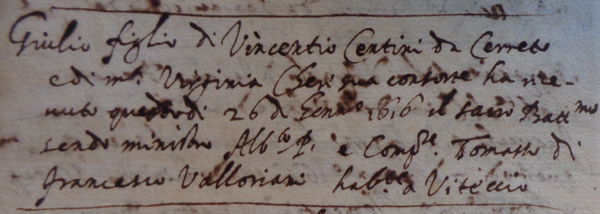 Giulio figlio di Vincentio Centini da Cerreto
e di m.ª Virginia Cheri sua consorte ha rice-
vuto questo dì 26 di Genn.º 1616 il sacro Batt.mo
sendo ministro Alb.to P. e Comp.re Tomasso di
Francesco Valloriani hab.te a Viteccio